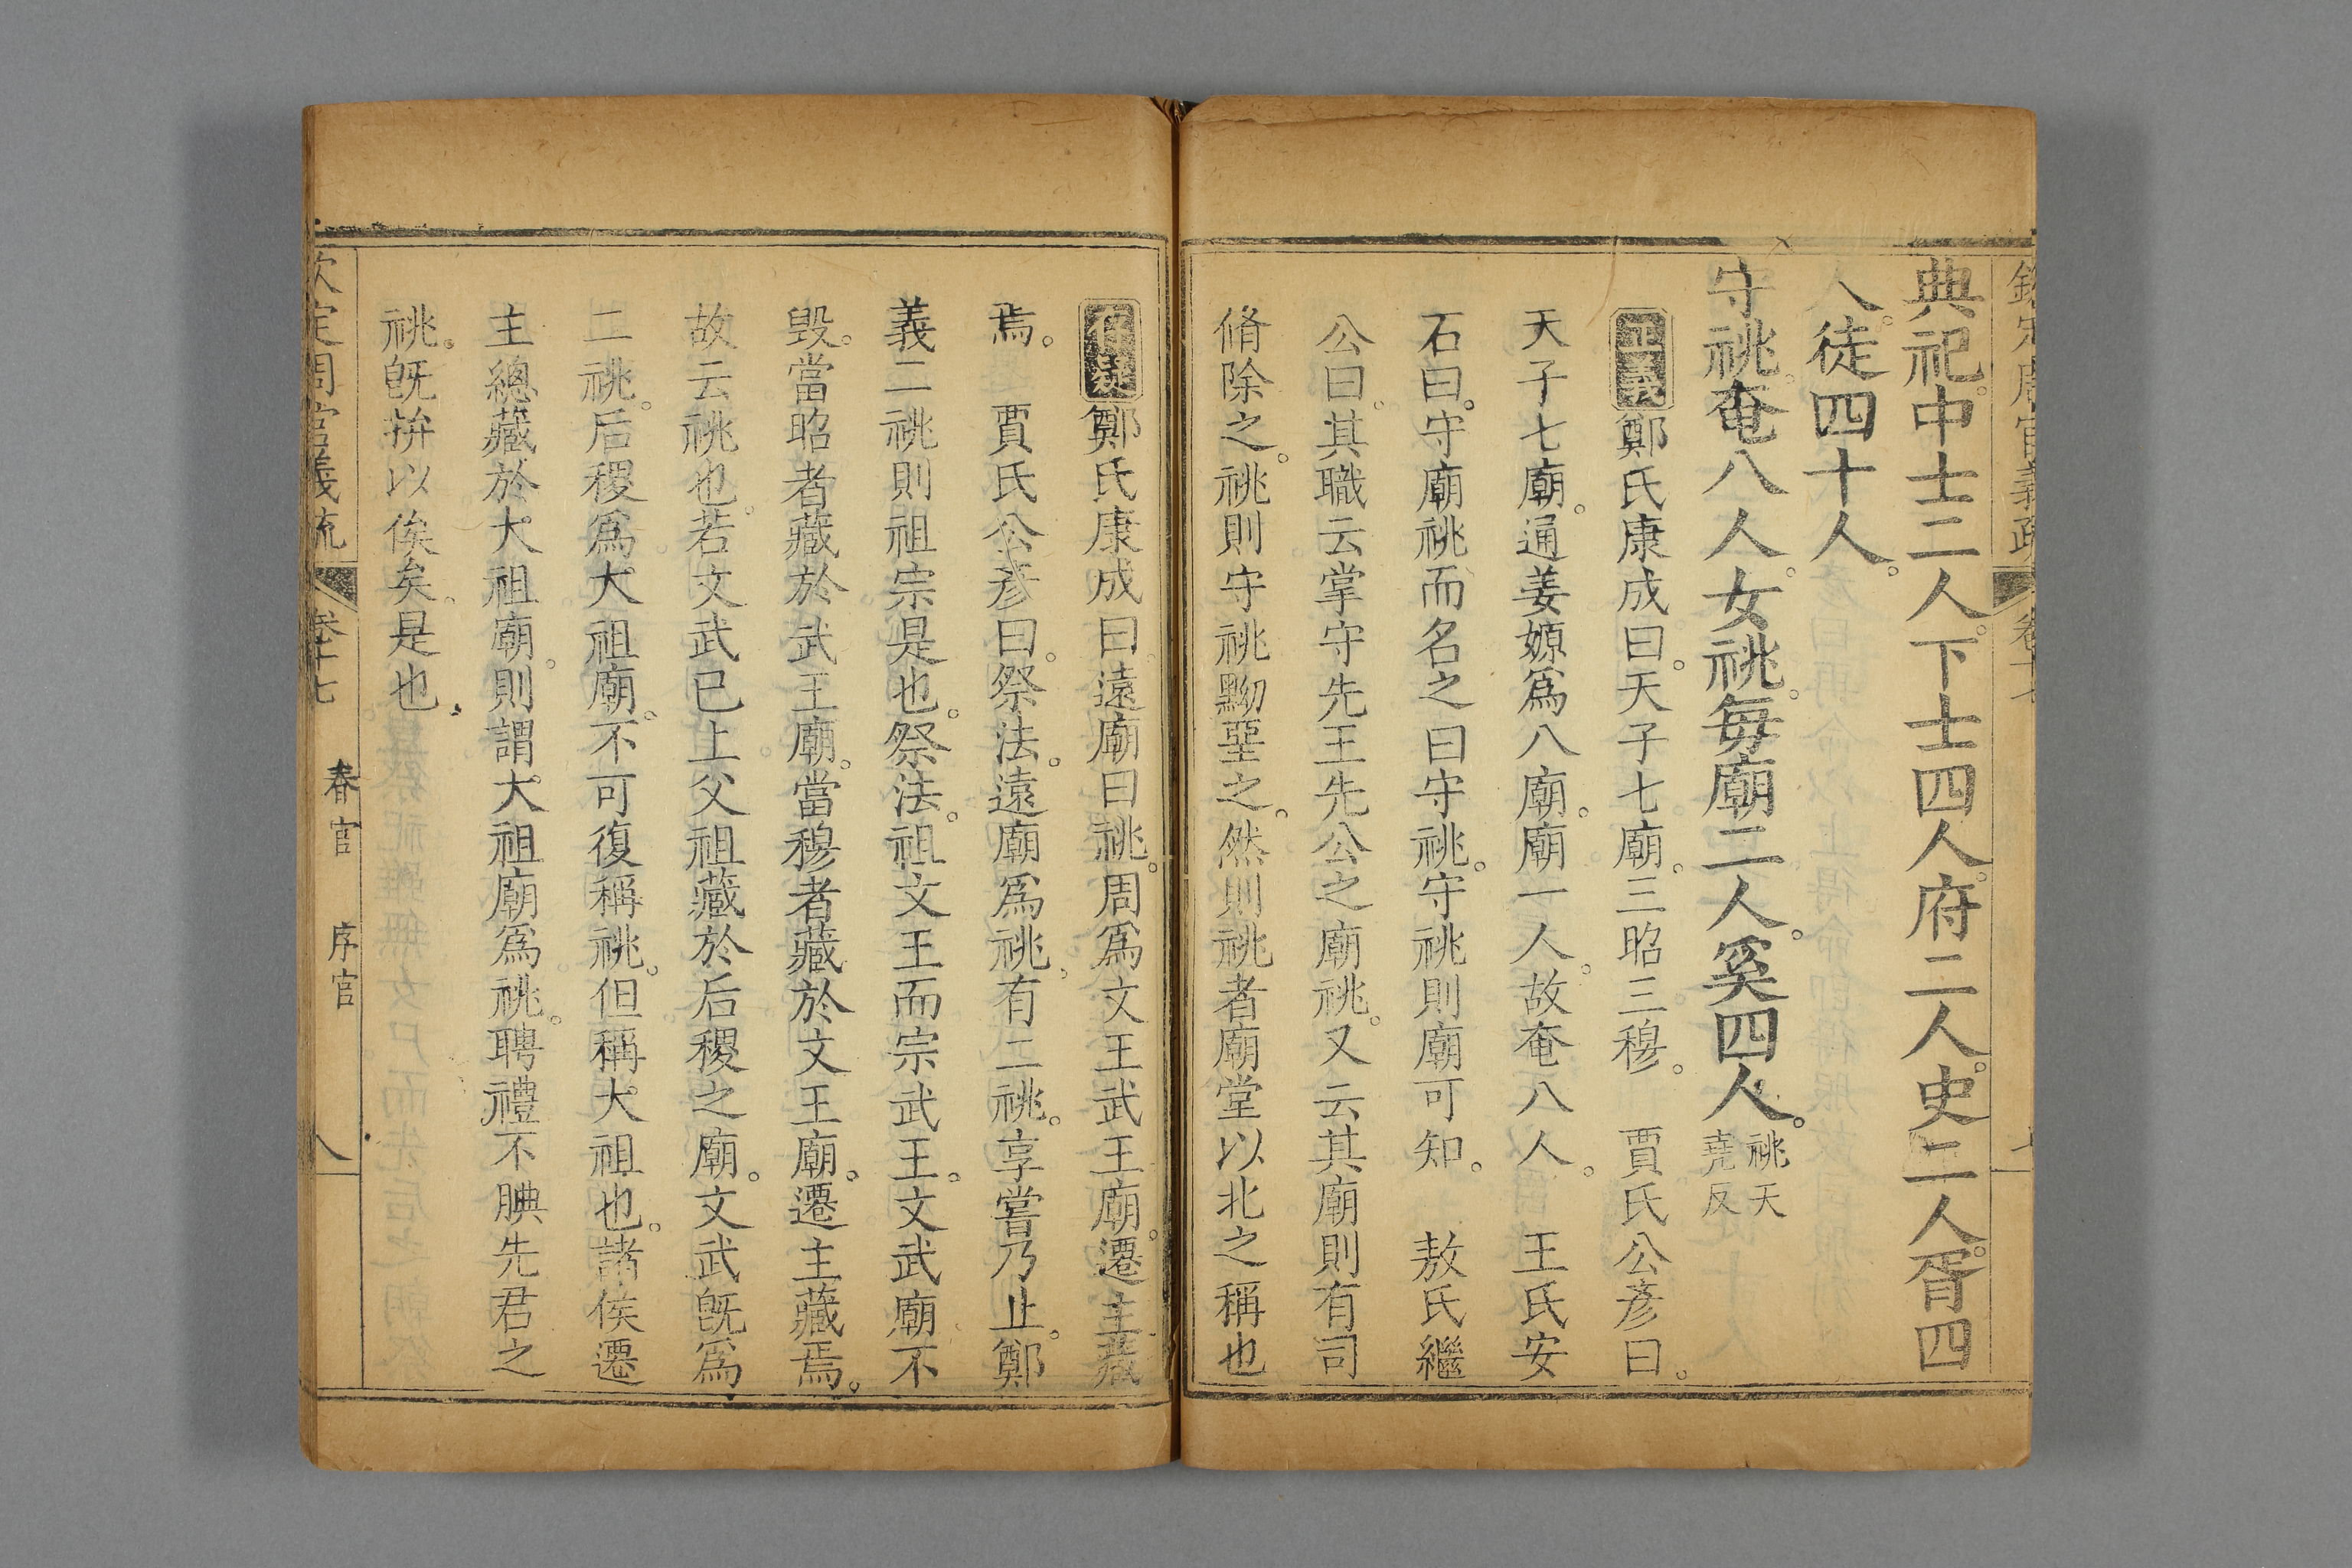 欽定周官義疏 卷十七
典祀。中士二人。下士四人。府二人。史二人。胥四
人。徒四十人。
守祧。奄八人。女祧。每廟二人。奚四人。祧天堯反
正義鄭氏康成曰。天子七廟。三昭三穆。 賈氏公彥曰。
天子七廟。通姜嫄爲八廟。廟一人。故奄八人。 王氏安
石曰。守廟祧而名之曰守祧。守祧則廟可知。 敖氏繼
公曰。其職云掌守先王先公之廟祧。又云其廟則有司
脩除之。祧則守祧黝堊之。然則祧者廟堂以北之稱也
存疑鄭氏康成曰遠廟曰祧。周爲文王武王廟。遷主藏
焉。 賈氏公彥曰。祭法。遠廟爲祧。有二祧。享嘗乃止。鄭
義二祧則祖宗是也。祭法。祖文王而宗武王。文武廟不
毀。當昭者藏於武王廟。當穆者藏於文王廟。遷主藏焉。
故云祧也。若文武已上父祖藏於后稷之廟。文武旣爲
二祧。后稷爲大祖廟。不可復稱祧。但稱大祖也。諸侯遷
主總藏於大祖廟。則謂大祖廟爲祧。聘禮不腆先君之
祧。旣拚以俟矣。是也。
欽定周官義疏 卷十七 春官 序官 八